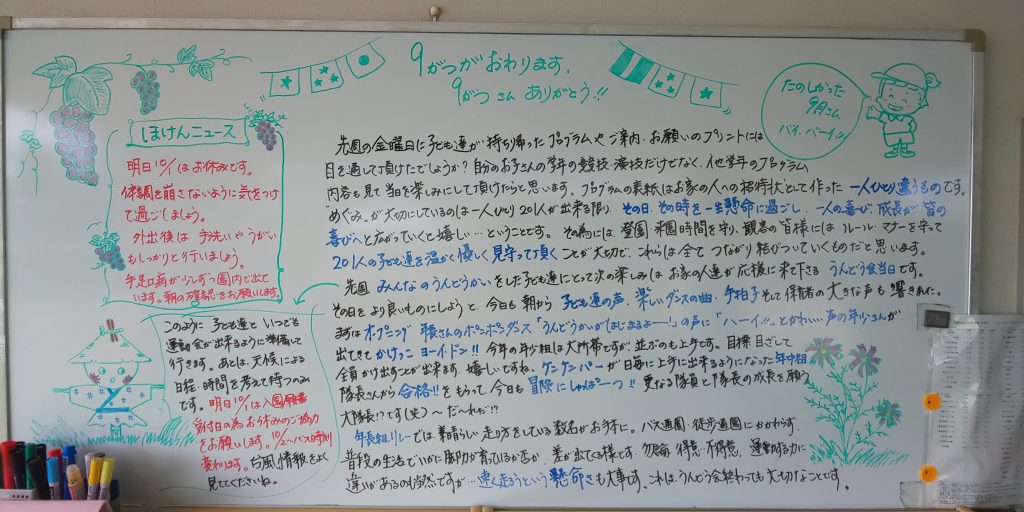 9がつがおわります.
9がつさん ありがとう!!
たのしかった
9月さん
バイ,バーイ
ほけんニュース
明日10/1はお休みです。
体調を崩さないように気をつけ
て過ごしましょう。
外出後は手洗いやうがい
もしっかりと行いましょう。
手足口病が少しずつ園内で出て
います。朝の確認をお願いします。
先週の金曜日に子ども達が持ち帰ったプログラムやご案内、お願いのプリントには
目を通して頂けたでしょうか?自分のお子さんの学年の競技、演技だけでなく、他学年のプログラム
内容も見て当日を楽しみにして頂けたらと思います。プログラムの表紙はお家の人への招待状として作った一人ひとり違うものです。
"めぐみ"が大切にしているのは一人ひとり201人が出来る限り、その日、その時を一生懸命に過ごし、一人の喜び、成長が皆の
喜びへと広がっていくと嬉しい…ということです。その為には、登園・来園時間を守り、観客の皆様にはルール・マナーを守って
201人の子ども達を温かく優しく見守って頂くことが大切で、これらは全てつながり結びついていくものだと思います。
先週みんなのうんどうかいをした子ども達にとって次の楽しみはお家の人達が応援に来て下さるうんどう会当日です。
その日をより良いものにしようと、今日も朝から子ども達の声、楽しいダンスの曲、手拍子そして保育者の大きな声も響きわた、
まずはオープニング 年長さんのポンポンダンス「うんどうかいがはじまるよーー!」の声に「ハーイ!!」とかわいい声の年少さんが
出てきてかけっこ ヨーイ・ドン!! 今年の年少組は大所帯ですが、並ぶのも上手です。目標めざして
全員かけ出すことが出来ます。嬉しいですね。ケンケンパーが日毎に上手に出来るようになった年中組
隊長さんから合格!!をもらって、今日も冒険にしゅっぱーつ!! 更なる隊員と隊長の成長を願う
大隊長!?です(笑)〜 だーれだ!?
年長組リレーでは、素晴らしい走り方をしている数名がお手本に。バス通園・徒歩通園にかかわらず、
普段の生活でいかに脚力が育っているか否か差が出てくる様です。勿論、得意、不得意、運動する力に
違いがあるのも当然ですが…速く走ろうという懸命さも大事です。これは、うんどう会終わっても大切なことです。
このように子ども達といつでも
運動会が出来るように準備して
行きます。あとは、天候による
日程・時間を考えて待つのみ
です。明日10/1は入園願書
受付日の為お休みのご協力
をお願いします。10/2〜バス時刻
変わります。台風情報をよく
見てくださいね。